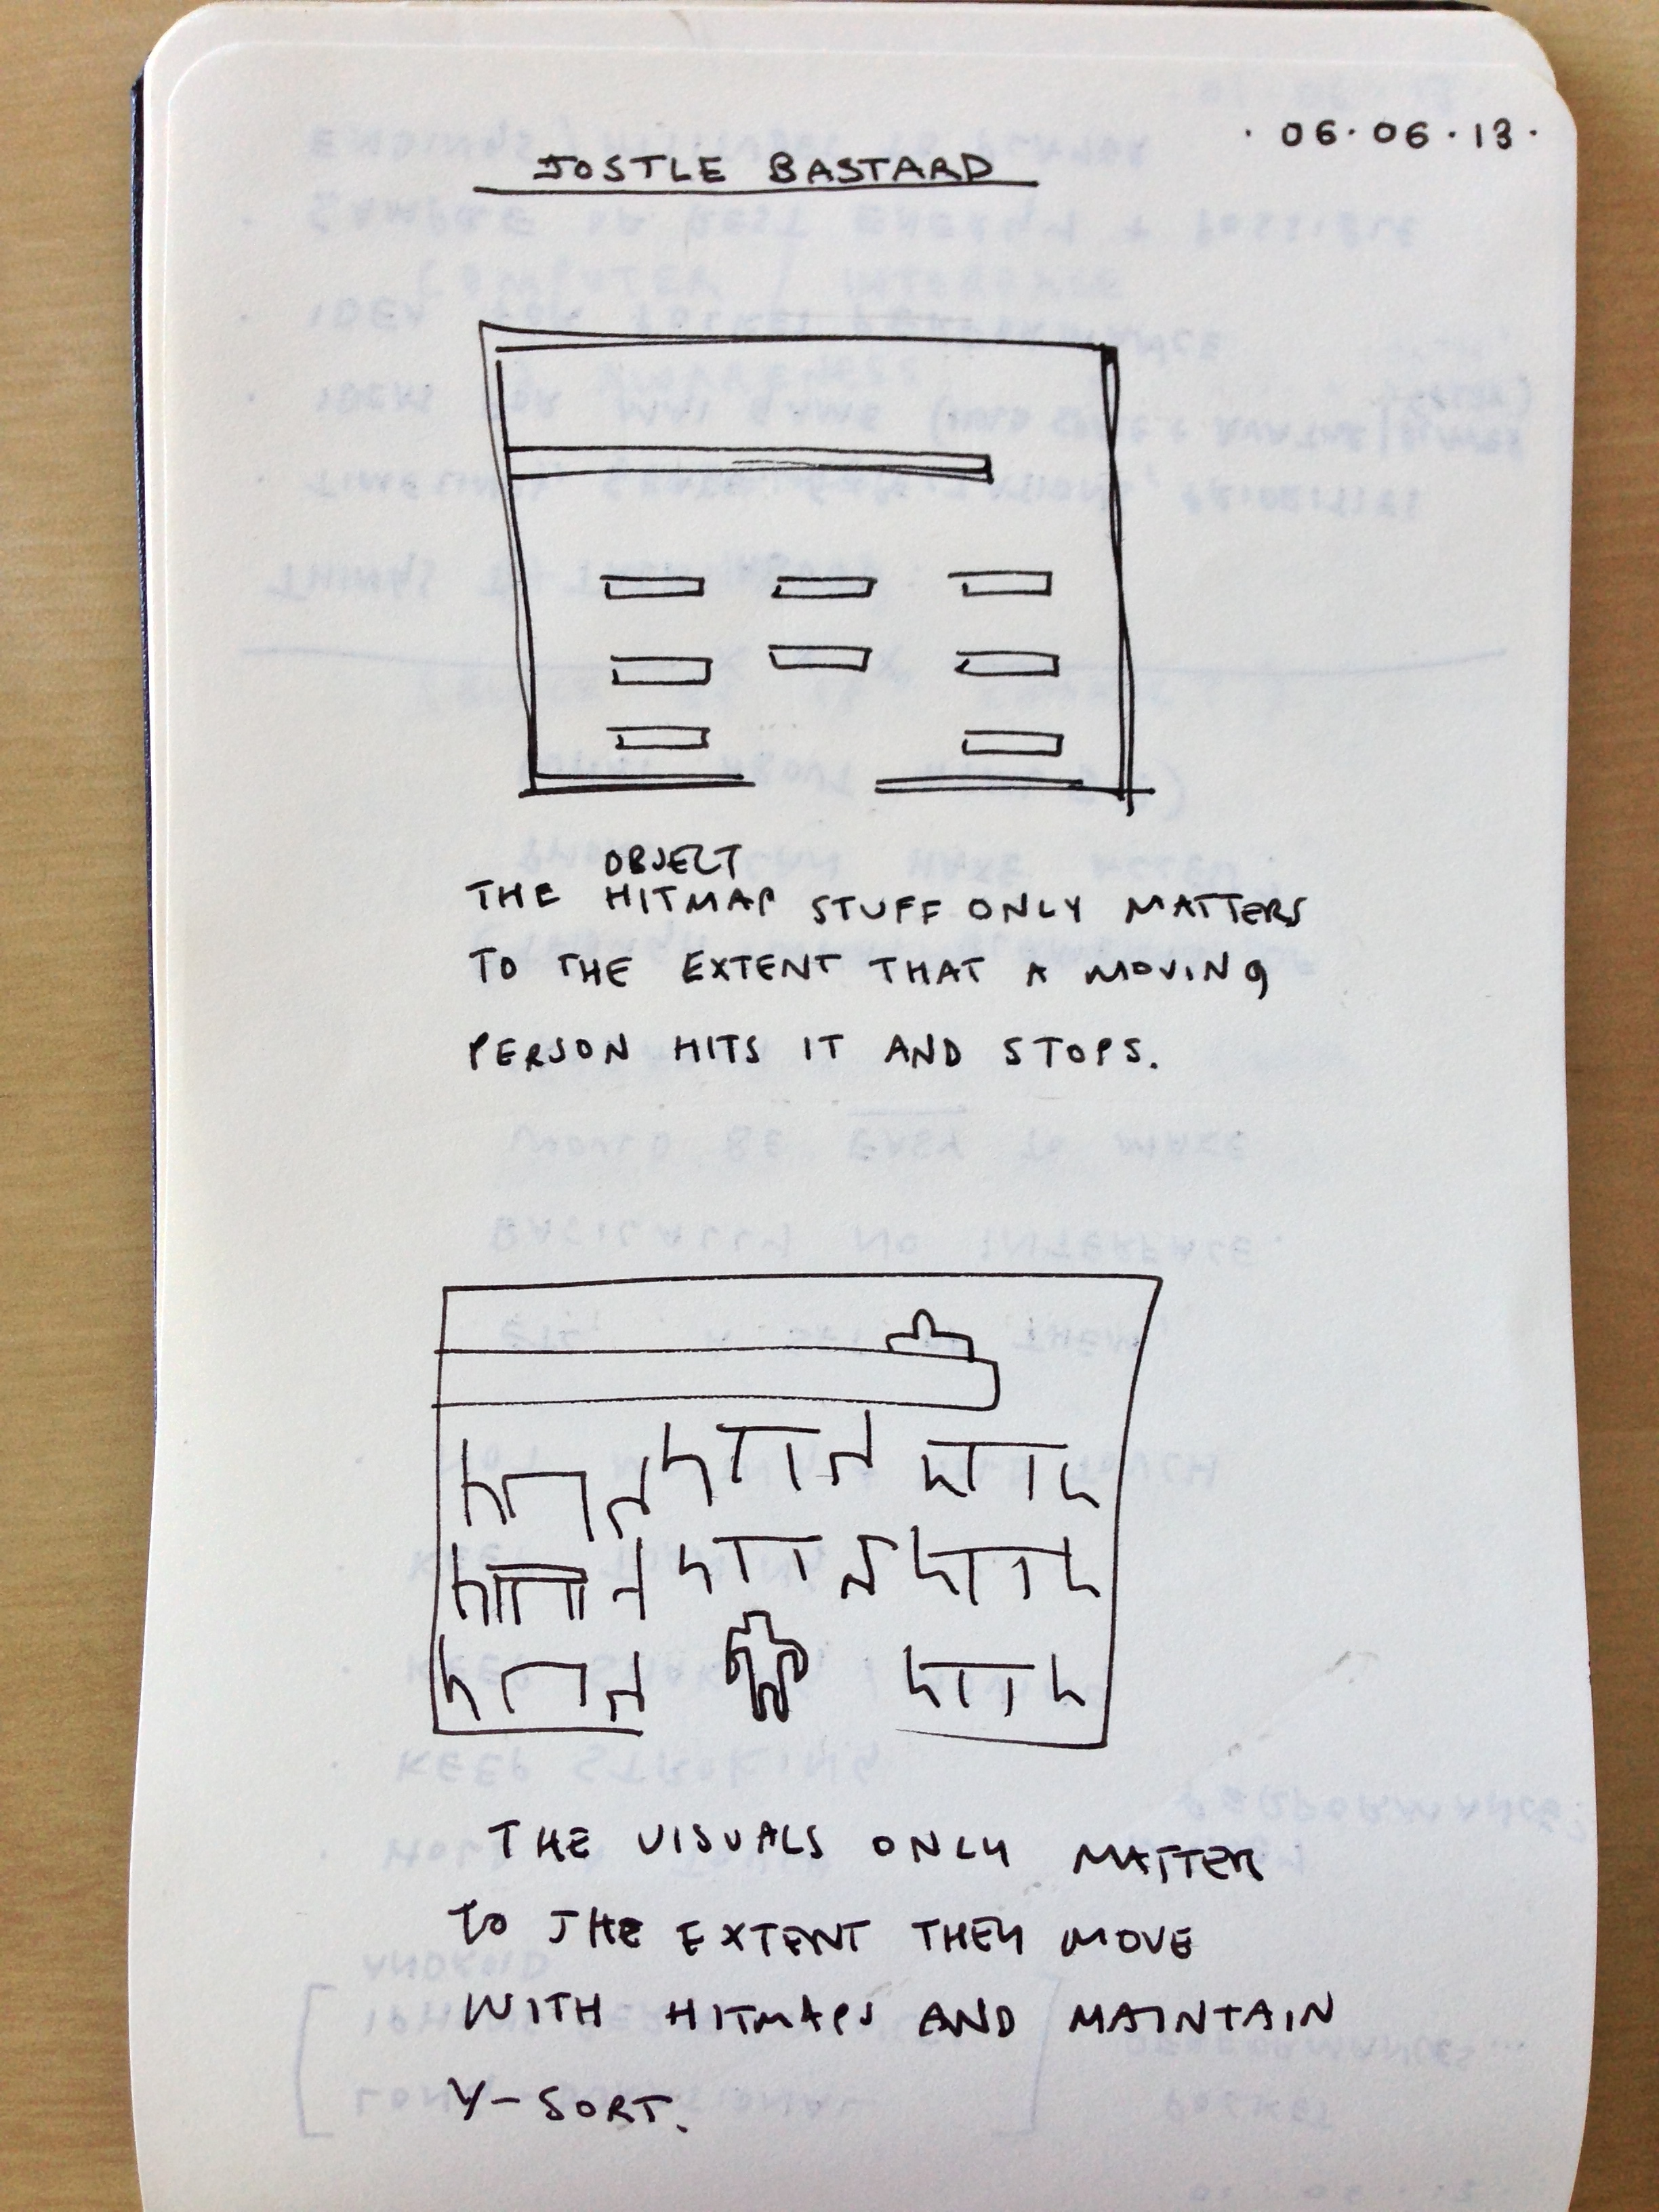 · 06·06·13·
JOSTLE BASTARD
OBJECT
THE HITMAP STUFF ONLY MATTERS
TO THE EXTENT THAT A MOVING
PERSON HITS IT AND STOPS.
THE VISUALS ONLY MATTER
TO THE EXTENT THEY MOVE
WITH HITMAPS AND MAINTAIN
Y-SORT.